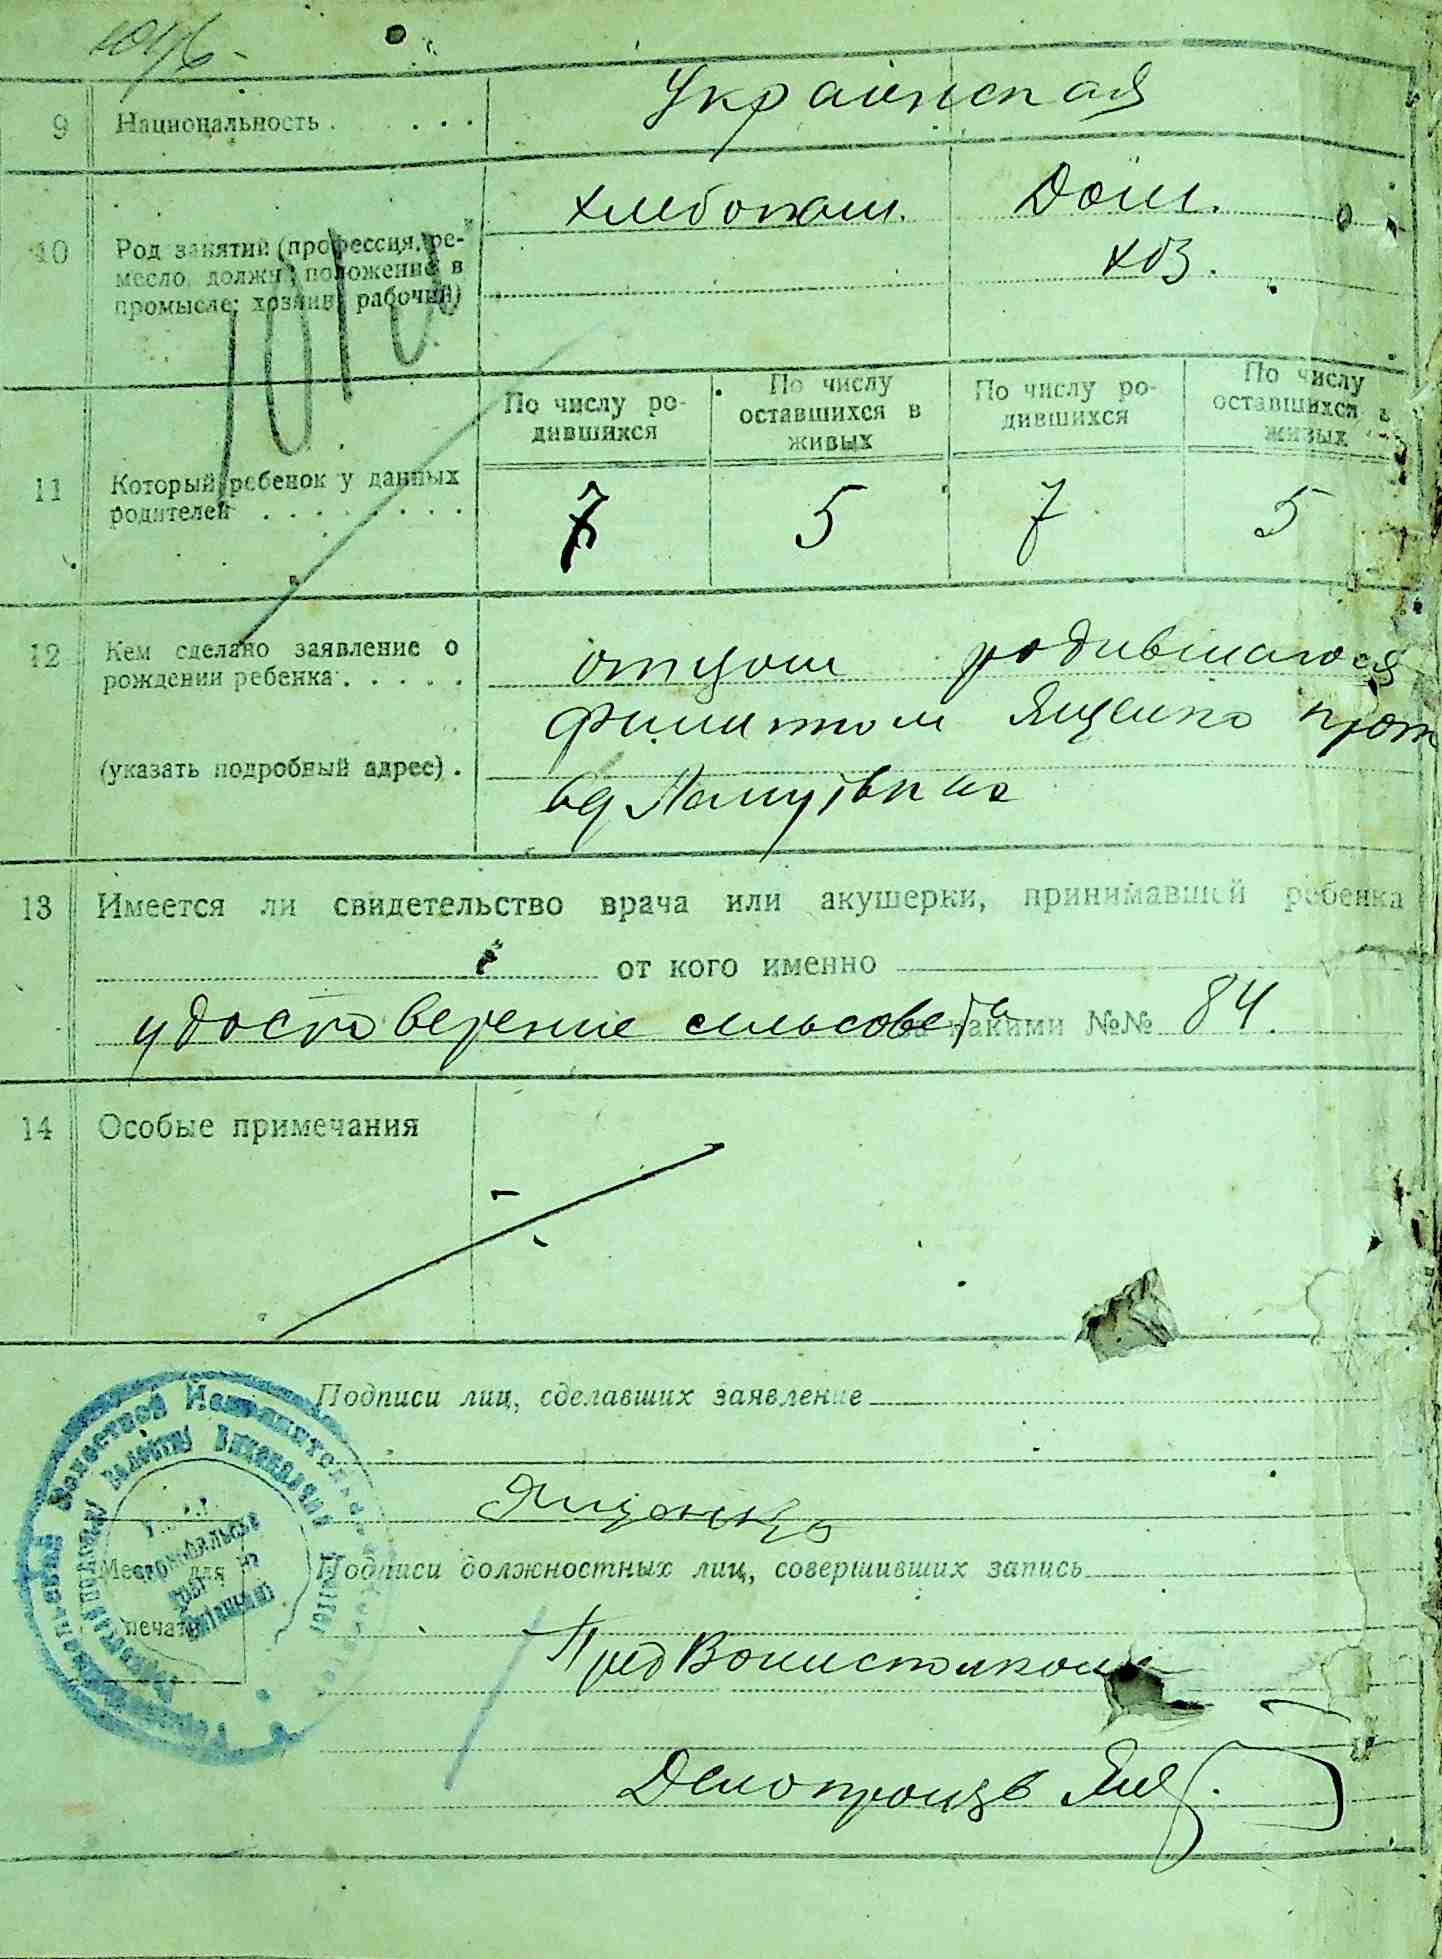 9 Национальность . . . . Украинская
10 Род занятий (профессия, ре-
месло, должн., положение в
промысле: хозяин, рабочий)
хлебопаш. Дом.
хоз.
1010
По числу ро-
дившихся
По числу
оставшихся в
живых
По числу ро-
дившихся
По числу
оставшихся в
живых
11 Который ребенок у данных
родителей . . . . . . . .
7 5 7 5
12 Кем сделано заявление о
рождении ребенка . . . . .
(указать подробный адрес) .
отцом родившагося
Ященко
13 Имеется ли свидетельство врача или акушерки, принимавшей ребенка
от кого именно
удостоверение сельсовета за какими №№ 84.
14 Особые примечания
Подписи лиц, сделавших заявление
Ященко
Место для
печати
Подписи должностных лиц, совершивших запись
Пред Волисполкома
Делопроизв